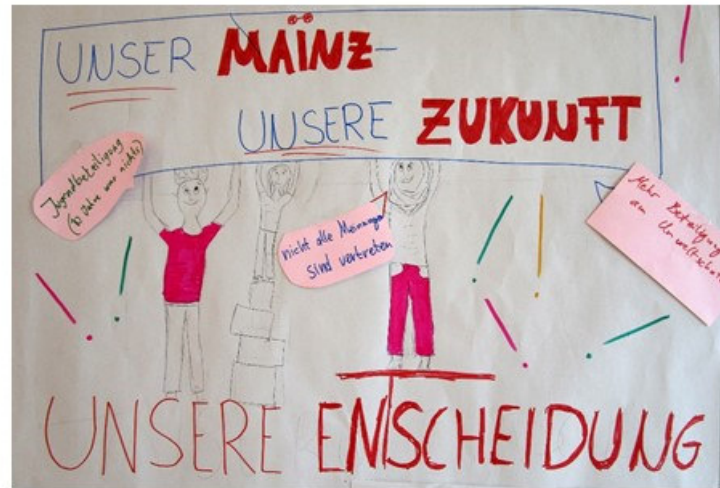 UNSER MAINZ-
UNSERE ZUKUNFT
Jugendbeteiligung
Jahre war nichts)
nicht alle Meinungen
sind vertreten
Mehr Beteiligung
am Umweltschutz
UNSERE ENSCHEIDUNG